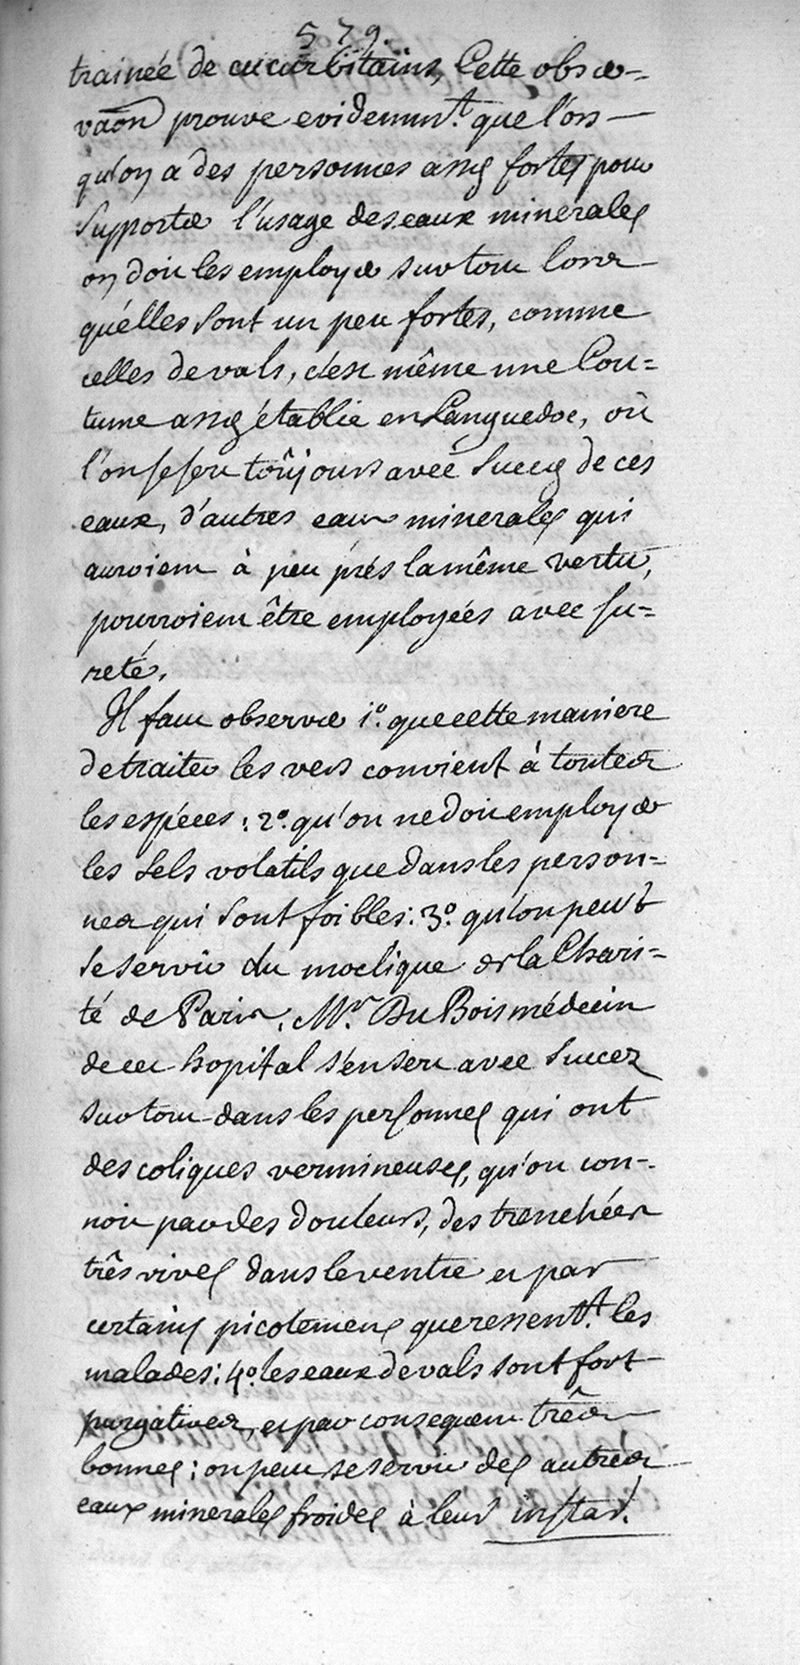 579.
trainée de cucurbitains, Cette obser=
vaon prouve evidemmt. que lors
qu'on a des personnes asses fortes pour
supporter l'usage des eaux minerales
on doit les employer sur tout lors
qu'elles sont un peu fortes, comme
celles de vals, c'est même une Cou=
tume assés établie en Languedoc, où
l'on se sert toûjours avec succes de ces
eaux, d'autres eaux minerales qui
auroient à peu prés la même vertu,
pourroient être employées avec su=
reté.
Il faut observer 1o. que cette maniere
de traiter les vers convient à toutes
les espéces: 2o. qu'on ne doit employer
les sels volatils que dans les person=
nes qui sont foibles: 3o. qu'on peut
se servir du moclique de la Chari=
té de Paris, Mr. Du Bois médecin
de cet hopital s'en sert avec succez
sur tout dans les personnes qui ont
des coliques vermineuses, qu'on con=
noit par des douleurs, des trenchées
très vives dans le ventre et par
certains picotemens que ressentt. les
malades: 4o. les eaux de vals sont fort
purgatives, et par consequent très
bonnes: on peut se servir des autres
eaux minerales froides à leur instar.